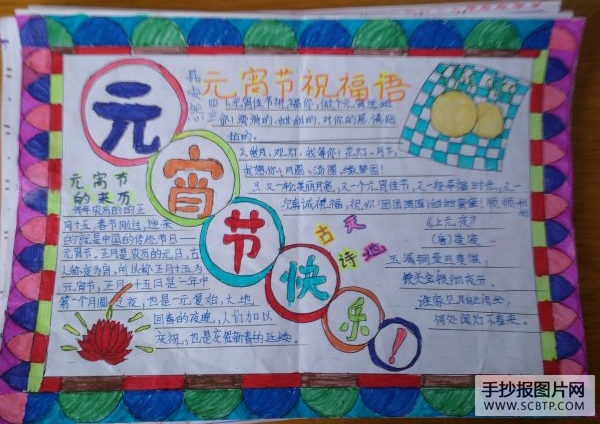 元
宵
节
快
乐
！
元宵节祝福语
1.元宵佳节祝福你,做个元宵送给
你!滑滑的,甜甜的,对你的感情始
始的。
2.赏月,观灯,我等你!花灯,月节,
我想你!月圆,汤圆,缘梦圆!
3.又一轮美丽月色,又一个元宵佳节,又一段幸福时光,又一
祝你团团圆圆
元宵节
的来历
每年农历的的正
月十五,春节刚过,迎来
的就是中国的传统节日——
元宵节。正月是农历的元月,古
人称夜为宵,所以称正月十五为
元宵节,正月十五日是一年中
第一个月圆之夜,也是一元复始,大地
回春的夜晚,人们加以
庆祝,也是庆贺新春的延续。
古灵
诗地
《上元夜》
(唐)崔液
玉漏铜壶且莫催,
铁关金锁彻夜开。
谁家见月能闲坐,
何处闻灯不看来。
手抄报图片网
WWW.SCBTP.COM